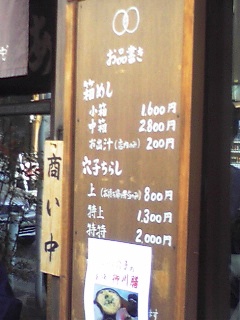 お品書き
箱めし
小箱 1,600円
中箱 2,800円
お出汁(店内のみ) 200円
穴子ちらし
上 800円
特上 1,300円
特特 2,000円
商い中